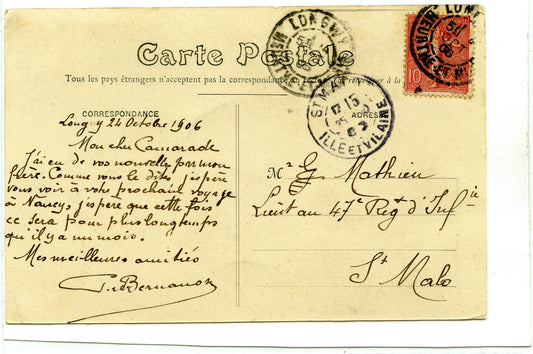 Carte Postale
Tous les pays étrangers n'acceptent pas la correspondance au recto
CORRESPONDANCE
ADRESSE
Longy 24 Octobre 1906
Mon cher Camarade
J'ai eu de vos nouvelles par mon
frère. Comme vous le dites, j'espère
vous voir à votre prochain voyage
à Nancy, j'espère que cette fois
ce sera pour plus longtemps
qu'il y a un mois.
Mes meilleures amitiés
Bernanos
Mr G Mathieu
Lieut au 47e Regt d'Infie
St Malo
LONGWY
ST MALO
ILLE ET VILAINE
10